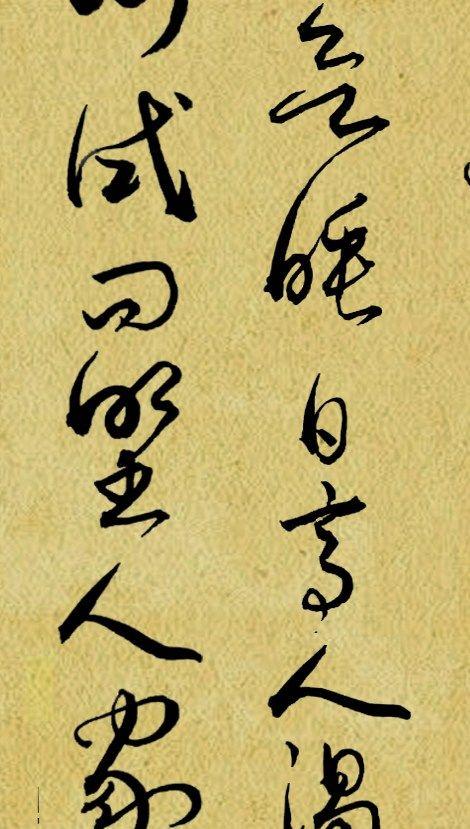 欲睡日高人渴
試問野人家